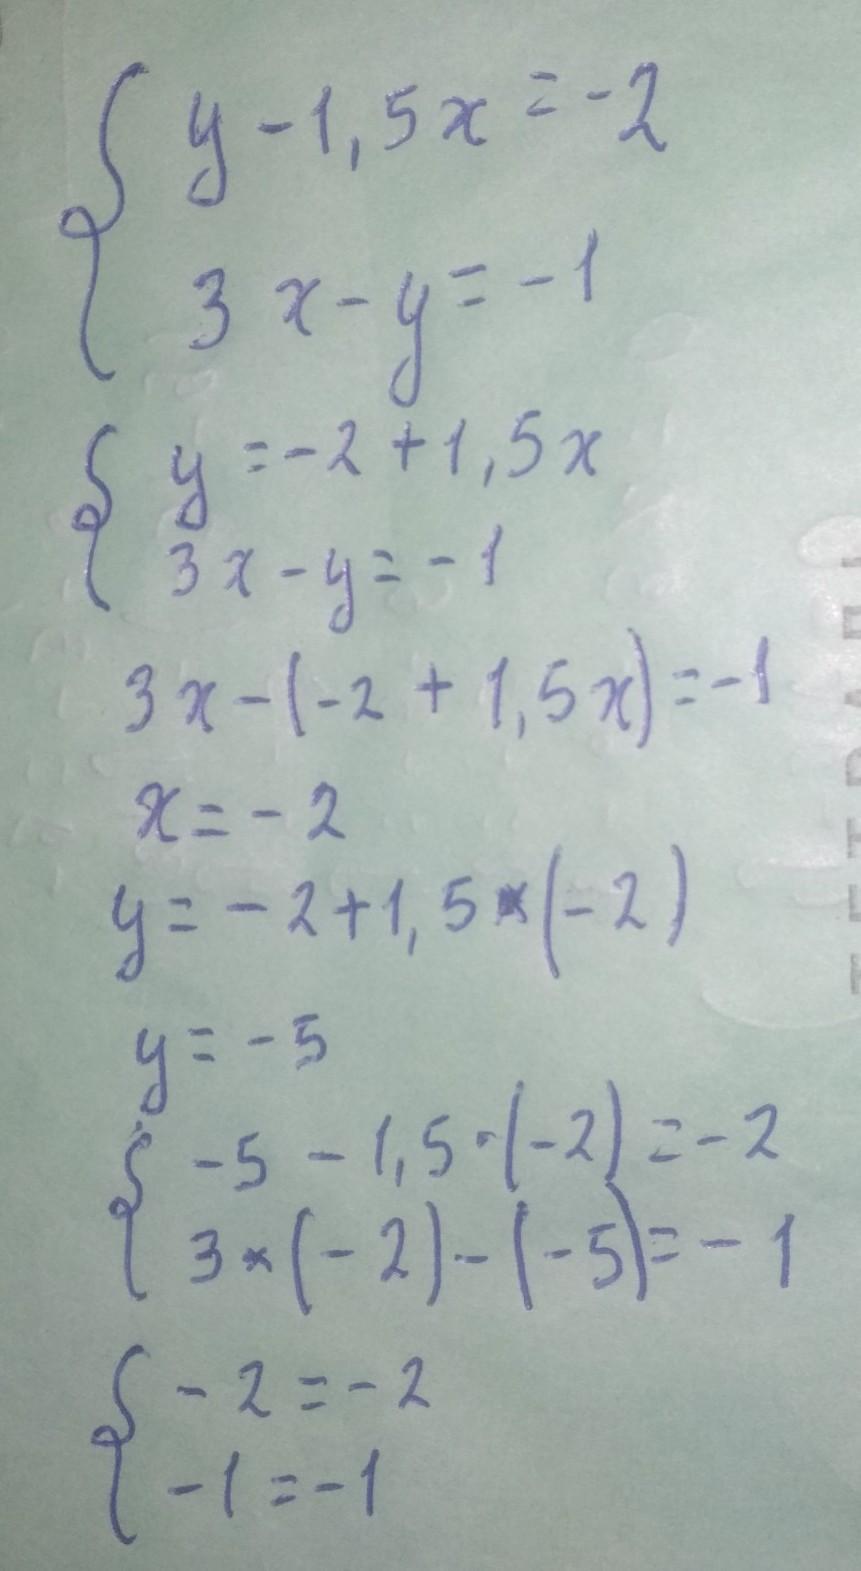 y - 1,5x = -2
3x - y = -1
y = -2 + 1,5x
3x - y = -1
3x - (-2 + 1,5x) = -1
x = -2
y = -2 + 1,5 * (-2)
y = -5
-5 - 1,5 · (-2) = -2
3 * (-2) - (-5) = -1
-2 = -2
-1 = -1